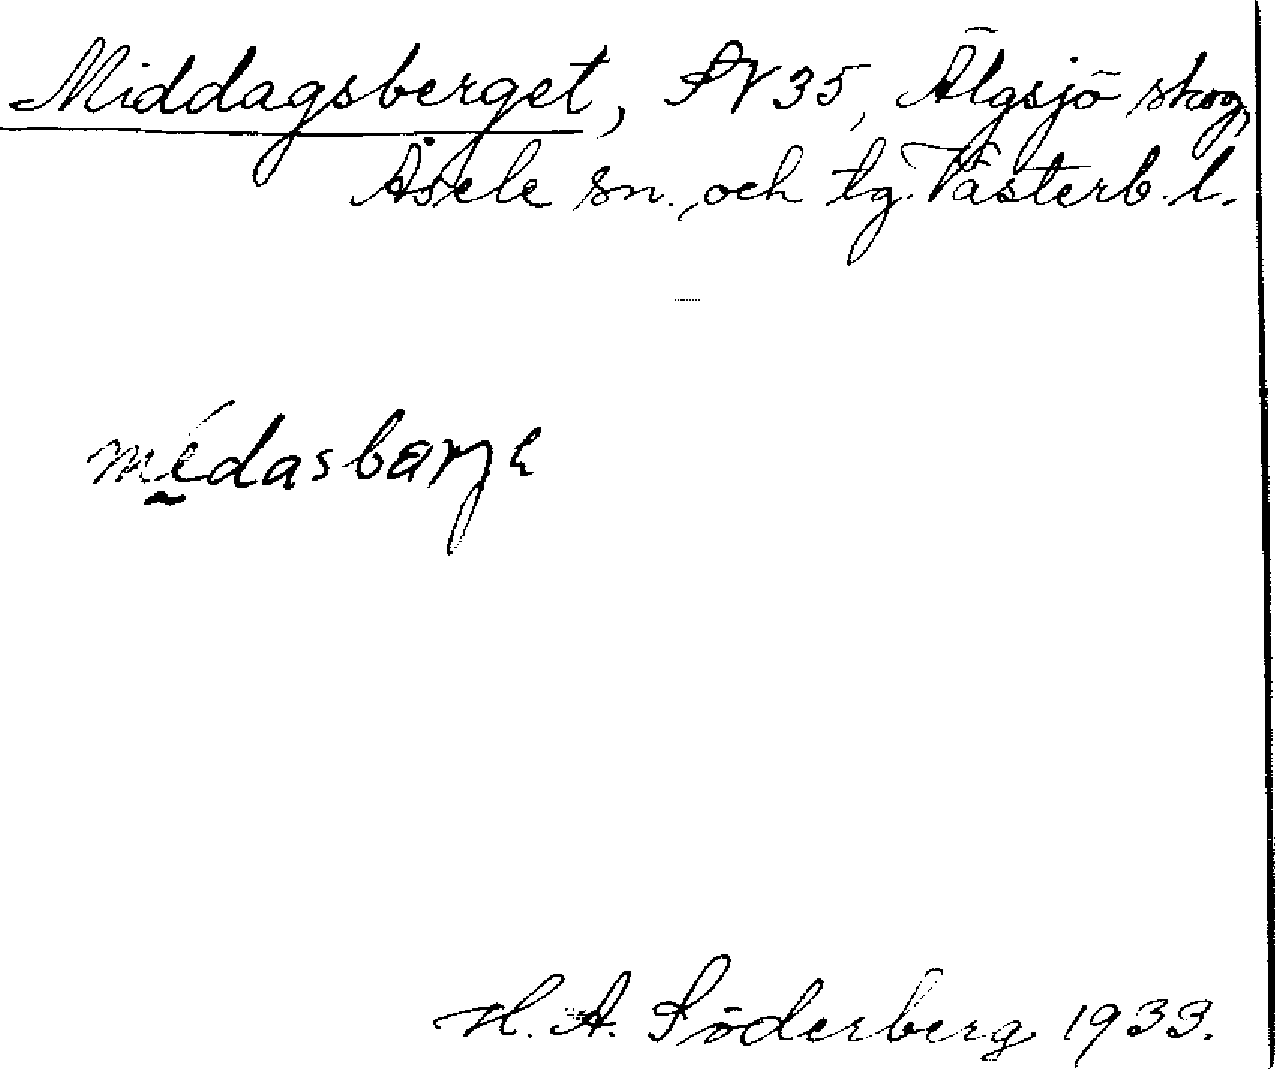 Middagsberget, SV 35, Älgsjö skog,
Åsele sn. och tg. Västerb. l.
H. A. Söderberg 1933.